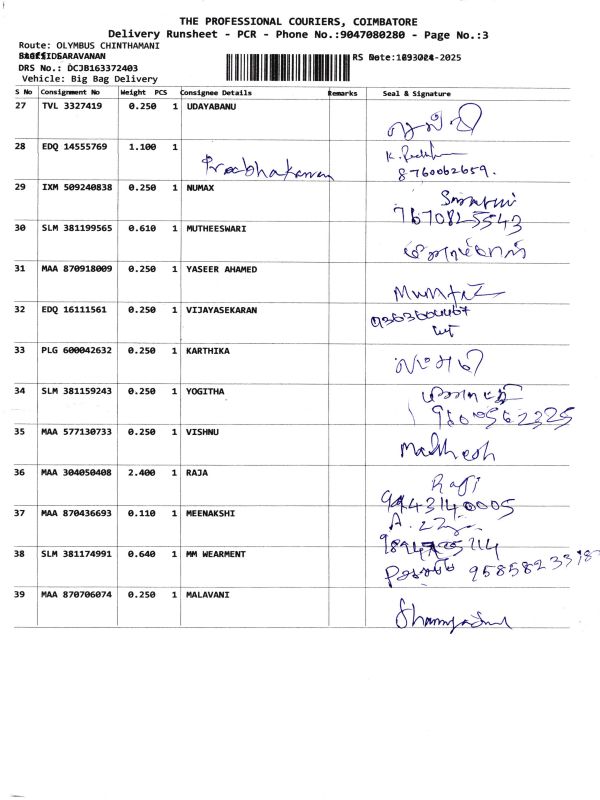 THE PROFESSIONAL COURIERS, COIMBATORE
Delivery Runsheet - PCR - Phone No.:9047080280 - Page No.:3
Route: OLYMBUS CHINTHAMANI
SARAVANAN
RS Date: -2025
DRS No.: DCJB163372403
Vehicle: Big Bag Delivery
S No Consignment No Weight PCS Consignee Details Remarks Seal & Signature
27 TVL 3327419 0.250 1 UDAYABANU
28 EDQ 14555769 1.100 1 Prabhakaran
8760062659.
29 IXM 509240838 0.250 1 NUMAX
7670825543
30 SLM 381199565 0.610 1 MUTHEESWARI
31 MAA 870918009 0.250 1 YASEER AHAMED
Mumtaz
32 EDQ 16111561 0.250 1 VIJAYASEKARAN
33 PLG 600042632 0.250 1 KARTHIKA
34 SLM 381159243 0.250 1 YOGITHA
35 MAA 577130733 0.250 1 VISHNU
Madhesh
36 MAA 304050408 2.400 1 RAJA
Raji
9443140005
37 MAA 870436693 0.110 1 MEENAKSHI
38 SLM 381174991 0.640 1 MM WEARMENT
39 MAA 870706074 0.250 1 MALAVANI